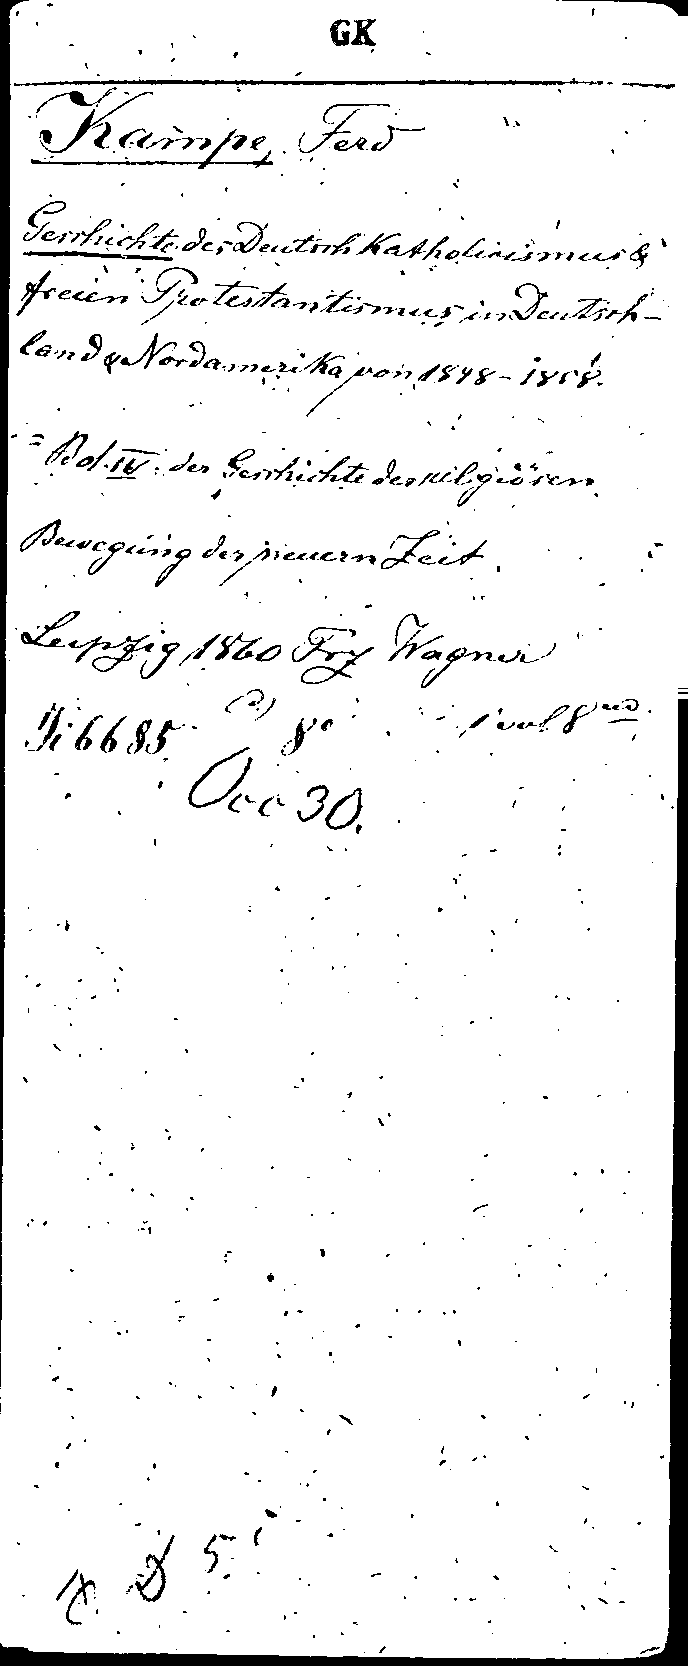 GK
Kampe, Ferd
Geschichte des Deutsch Katholicismus &
freien Protestantismus in Deutsch-
land & Nordamerika von 1848-1858.
= Bd. IV. der Geschichte der religiösen
Bewegung der neuern Zeit.
Leipzig 1860 Frz Wagner
6685 (2) 8° 1 vol 8vo
Occ 30.
D 5